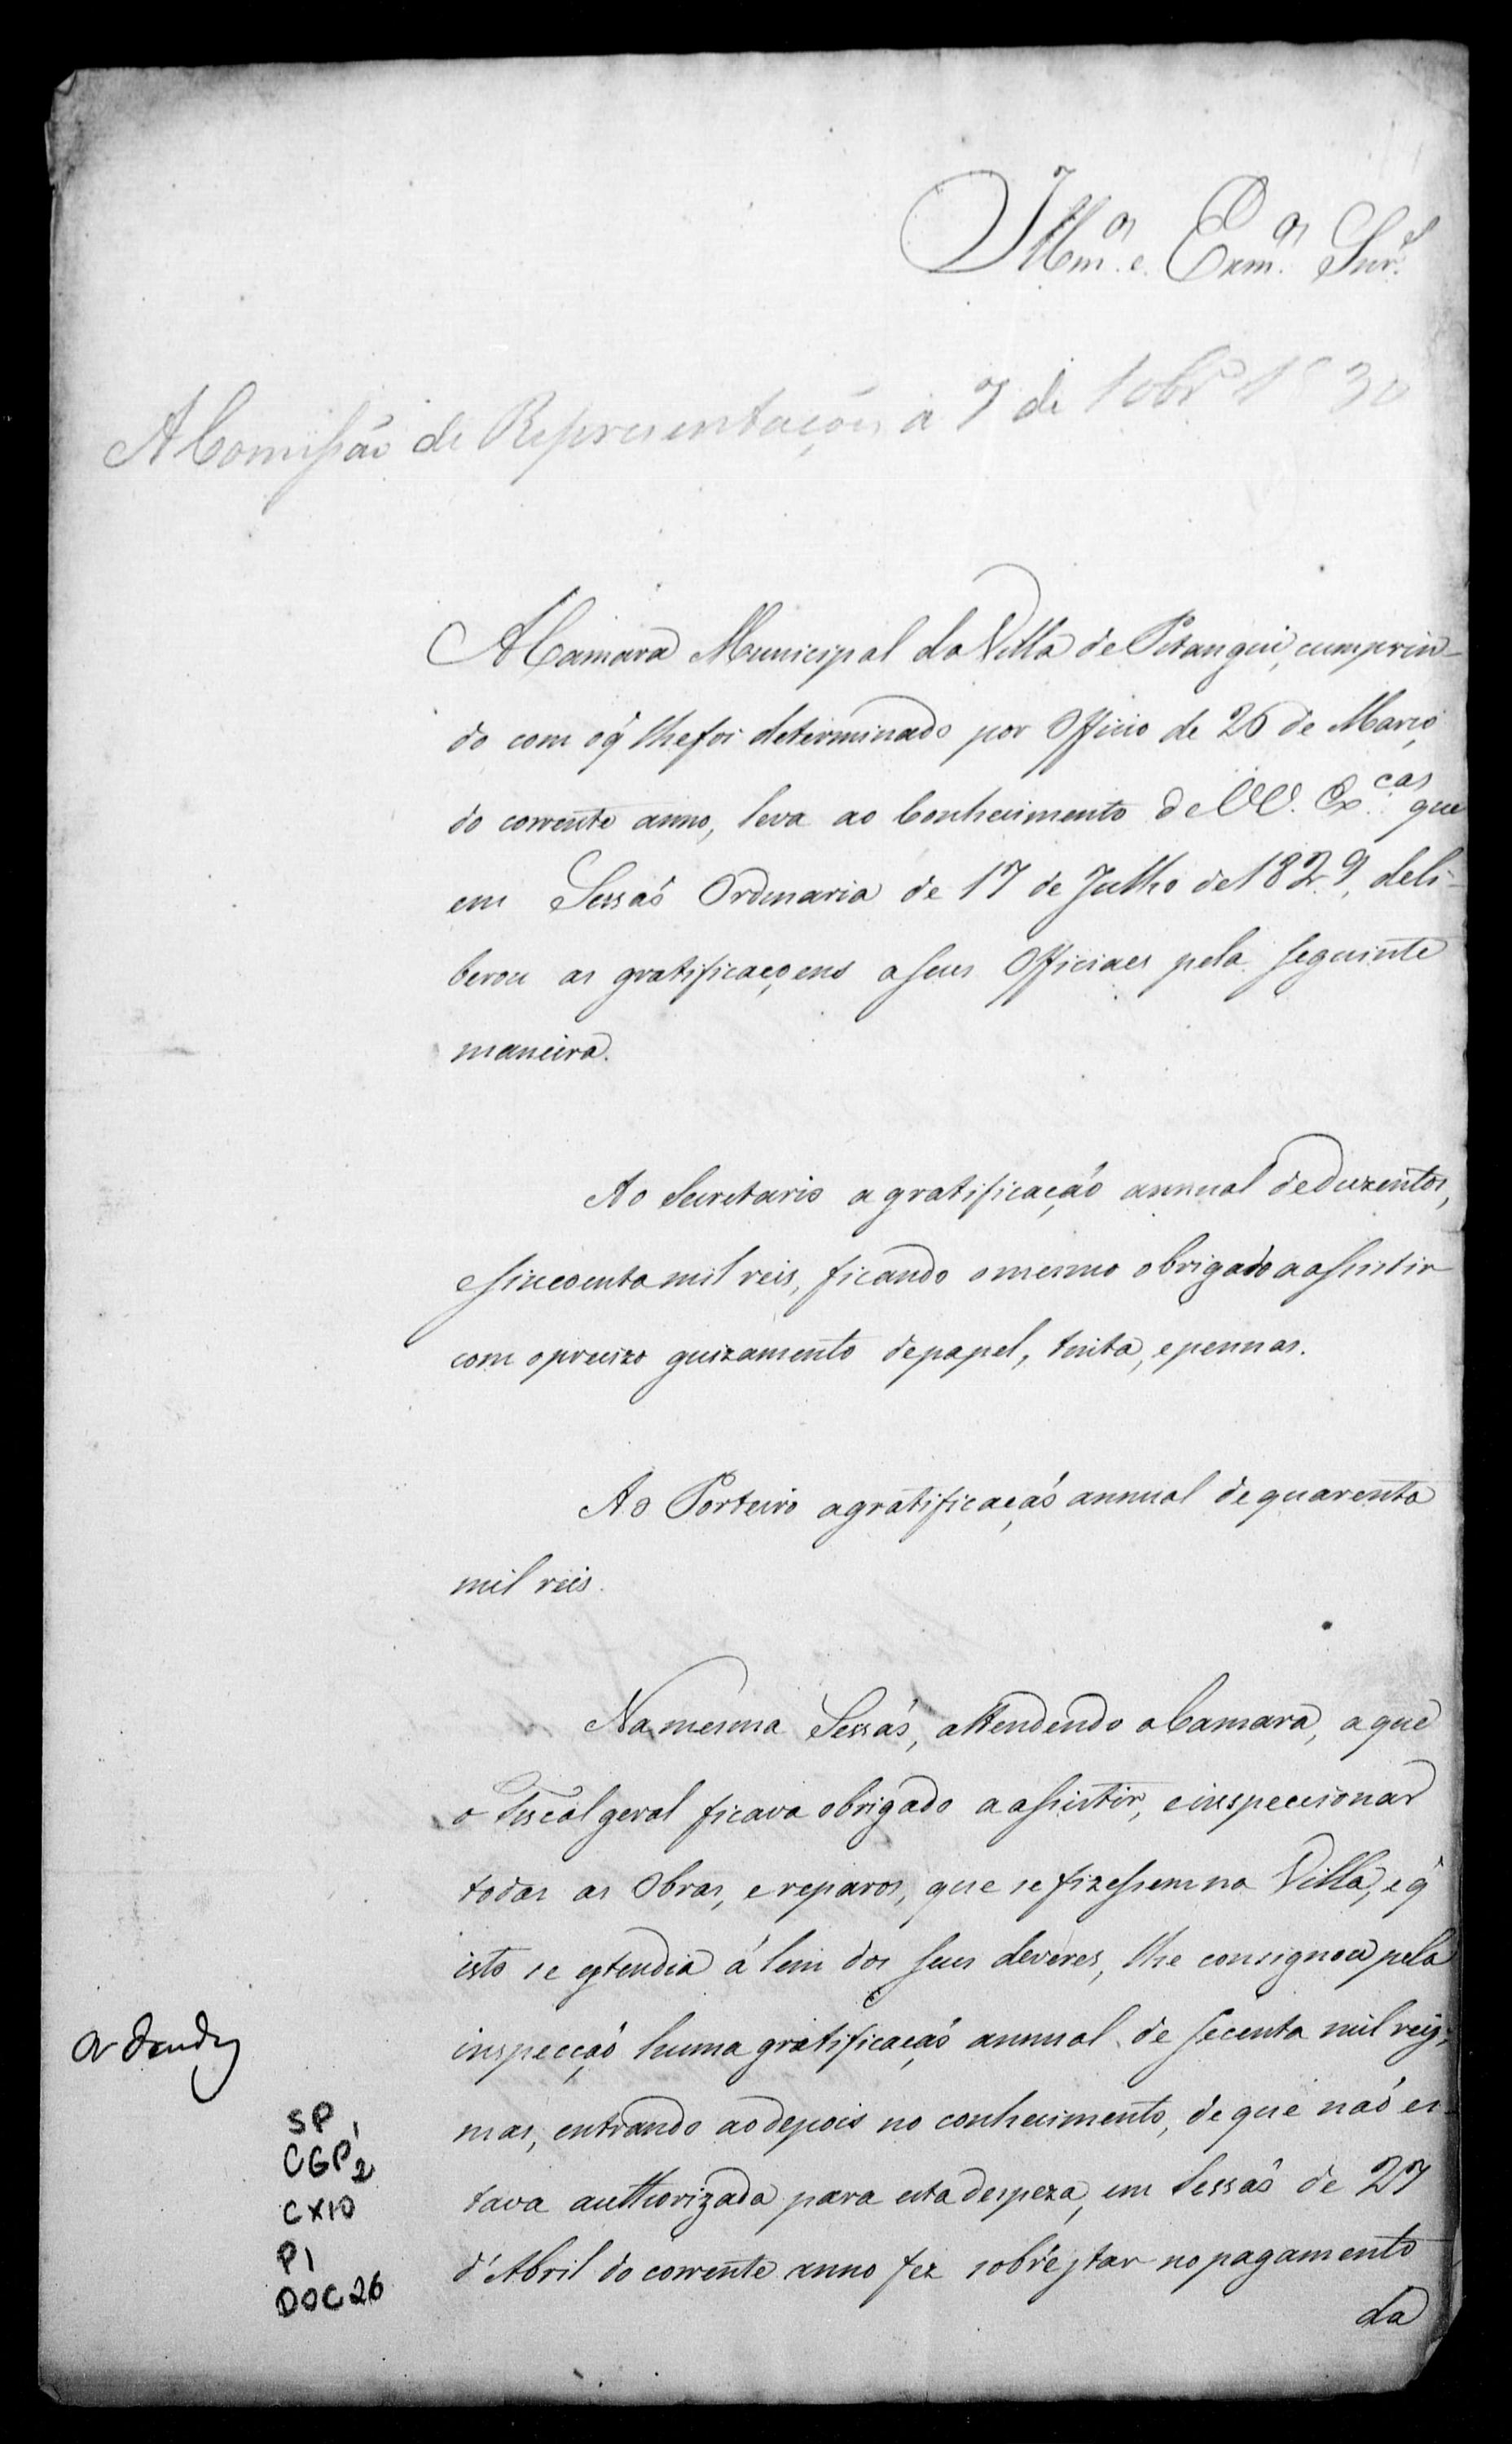 Illm.os e Exm.os Snr.s
A Comissão de Representações a 7 de 10br.o 1830
A Camara Municipal da Villa de Pitangui, cumprin-
do com oq̃ lhefoi determinado por Officio de 26 de Março
do corrente anno, leva ao Conhecimento de VV. Ex.cas que
em Sessaõ Ordinaria de 17 de Julho de 1829, deli-
berou as gratificaçoens aseus Officiaes pela seguinte
maneira.
Ao Secretario agratificação annual deduzentos,
esincoenta mil reis, ficando omesmo obrigado aassistir
com opreciso guizamento depapel, tinta, epennas.
Ao Porteiro agratificaçaõ annual dequarenta
mil reis.
Namesma Sessaõ, attendendo aCamara, aque
o Fiscal geral ficava obrigado aassistir, einspeccionar
todas as Obras, ereparos, que sefizessem na Villa, eq̃
isto se extendia á lem dos seus deveres, lhe consignou pela
inspecçaõ huma gratificaçaõ annual de secenta mil reis;
mas, entrando aodepois no conhecimento, deque naõ es-
tava authorizada para esta despeza, em Sessaõ de 27
d'Abril do corrente anno fez sobr'estar nopagamento
da
SP
CGP2
CX10
P1
DOC26